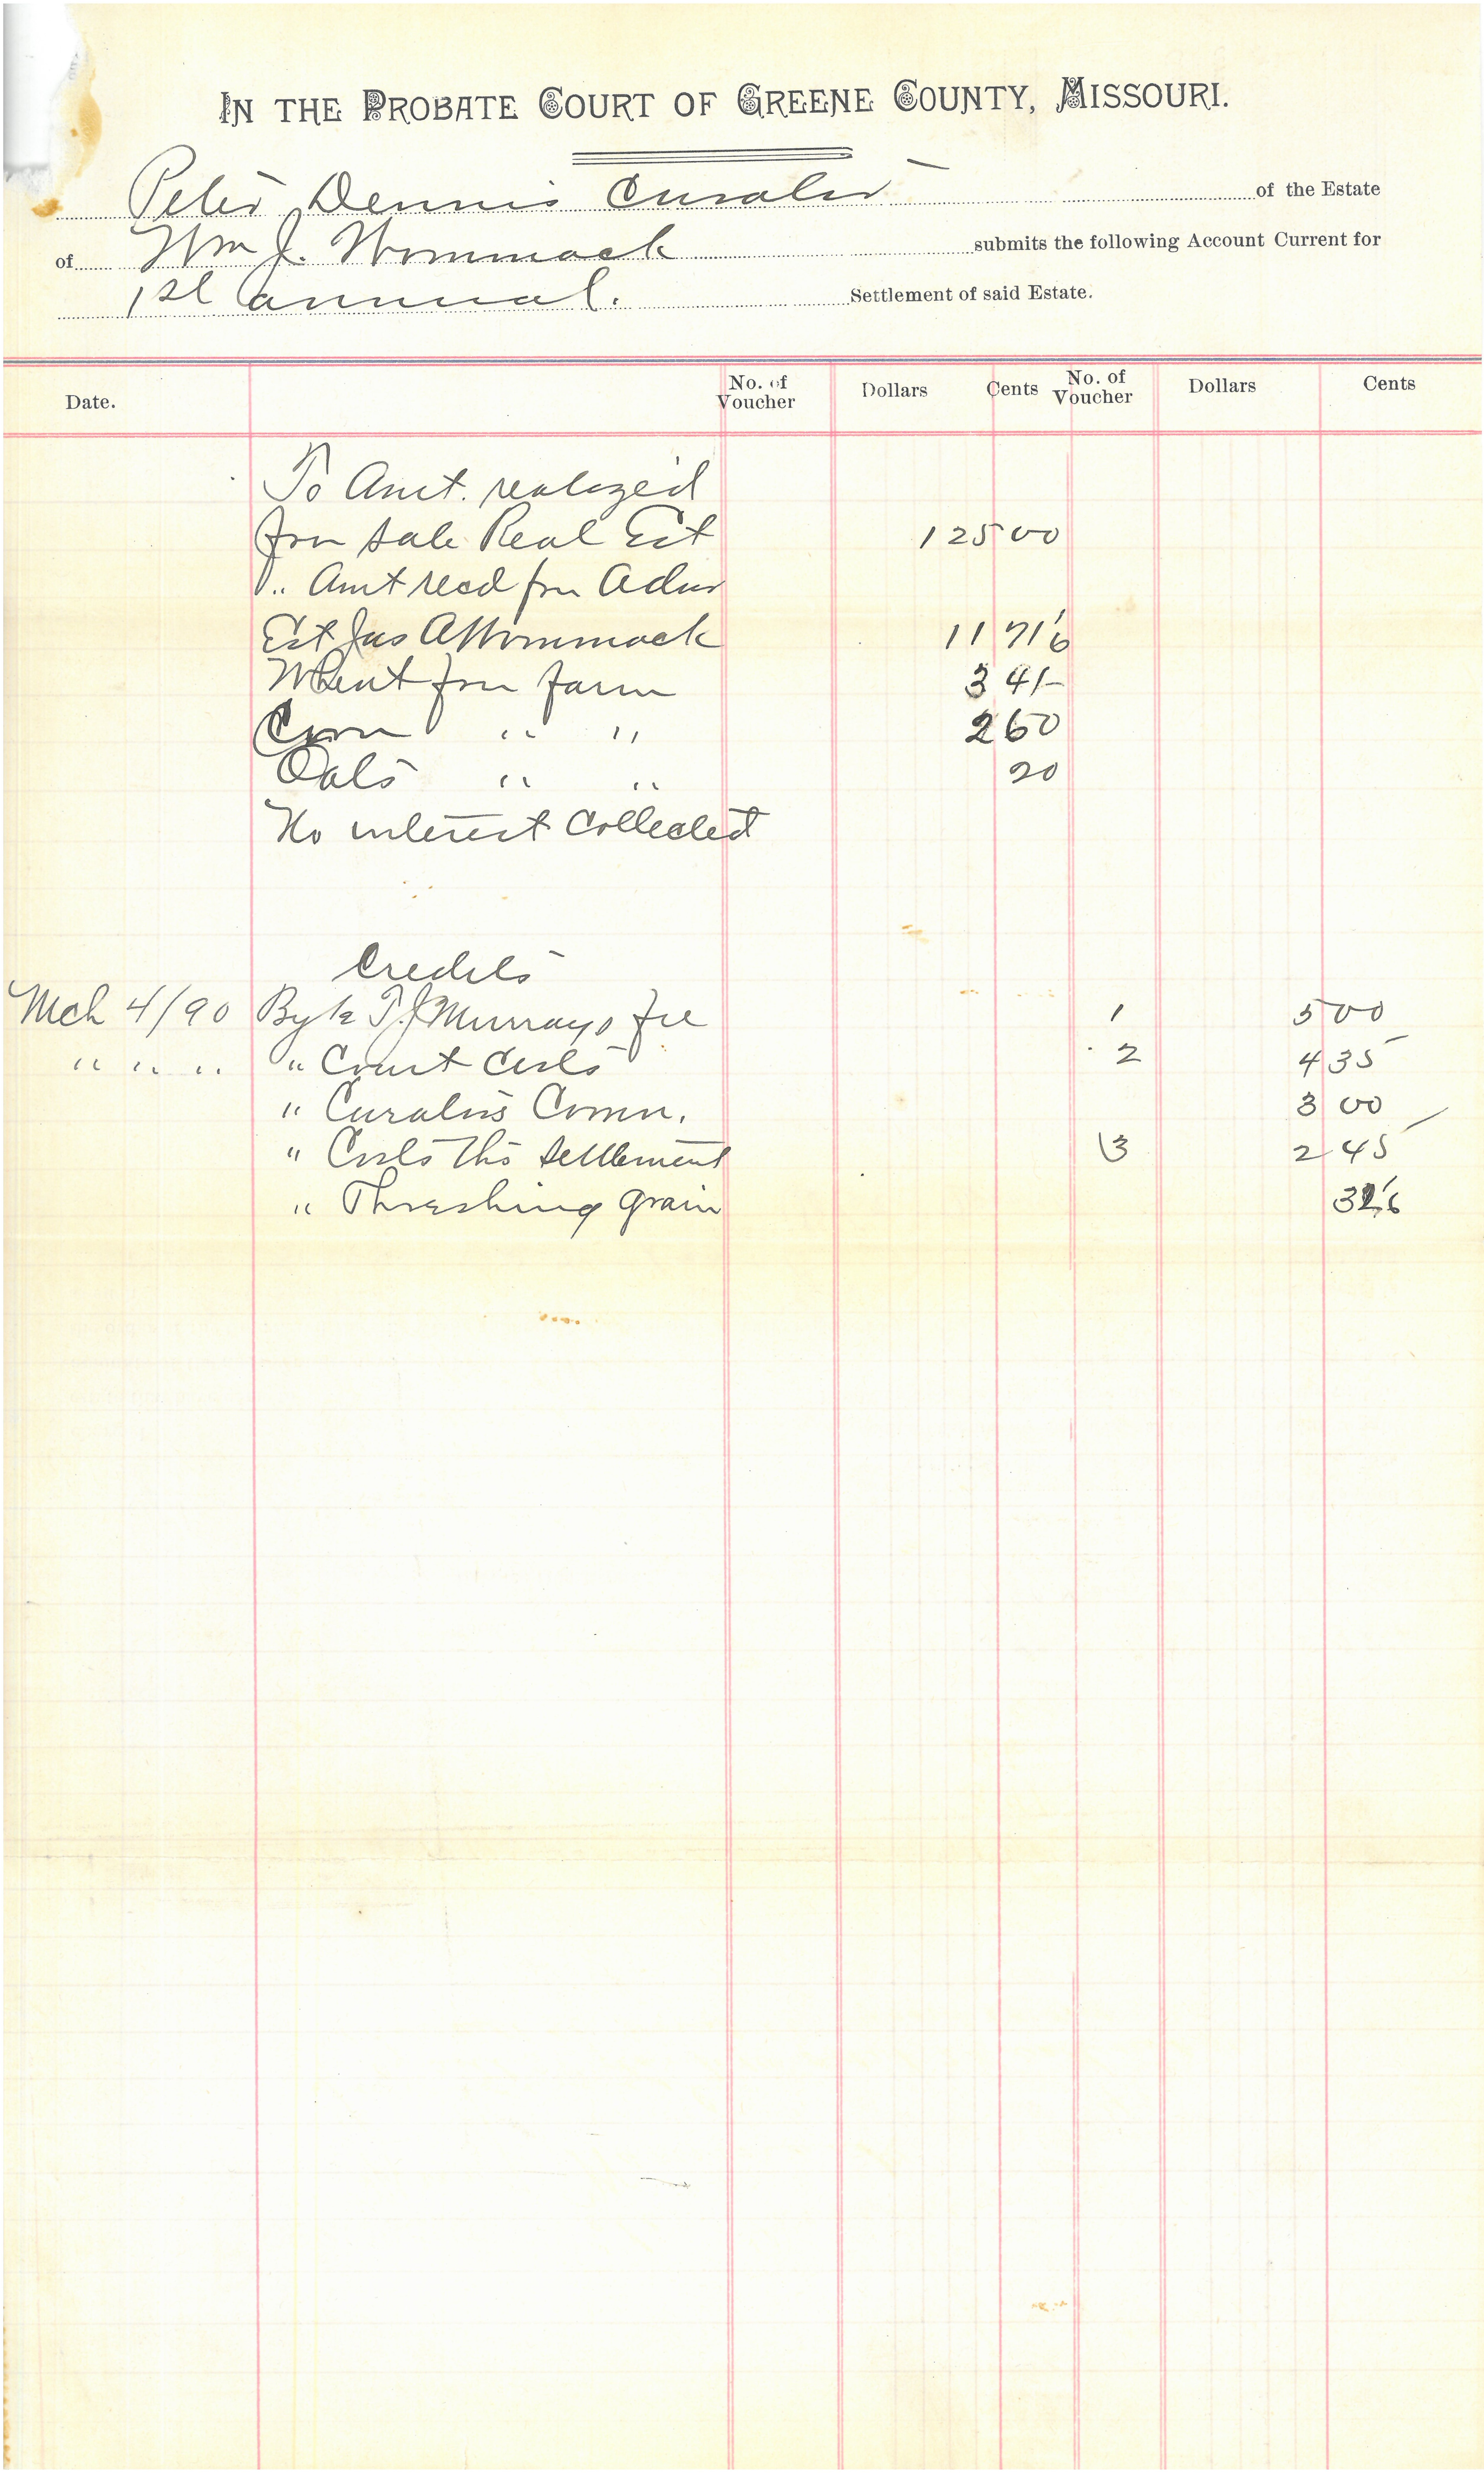 IN THE PROBATE COURT OF GREENE COUNTY, MISSOURI.
Peter Dennis Curator of the Estate
of Wm J. Wommack submits the following Account Current for
1st annual. Settlement of said Estate.
Date. No. of Voucher Dollars Cents No. of Voucher Dollars Cents
To Amt. realized
from sale Real Est 125 00
" Amt recd from Admr
Est Jas A Wommack 11 71 6
Wheat from farm 3 41
Corn " " 2 60
Oats " " 20
No interest Collected
Credits
Mch 4/90 By T. J. Murrays fee 1 5 00
" " " " Court Costs 2 4 35
" Curators Comn. 3 00
" Costs this settlement 3 2 45
" Threshing grain